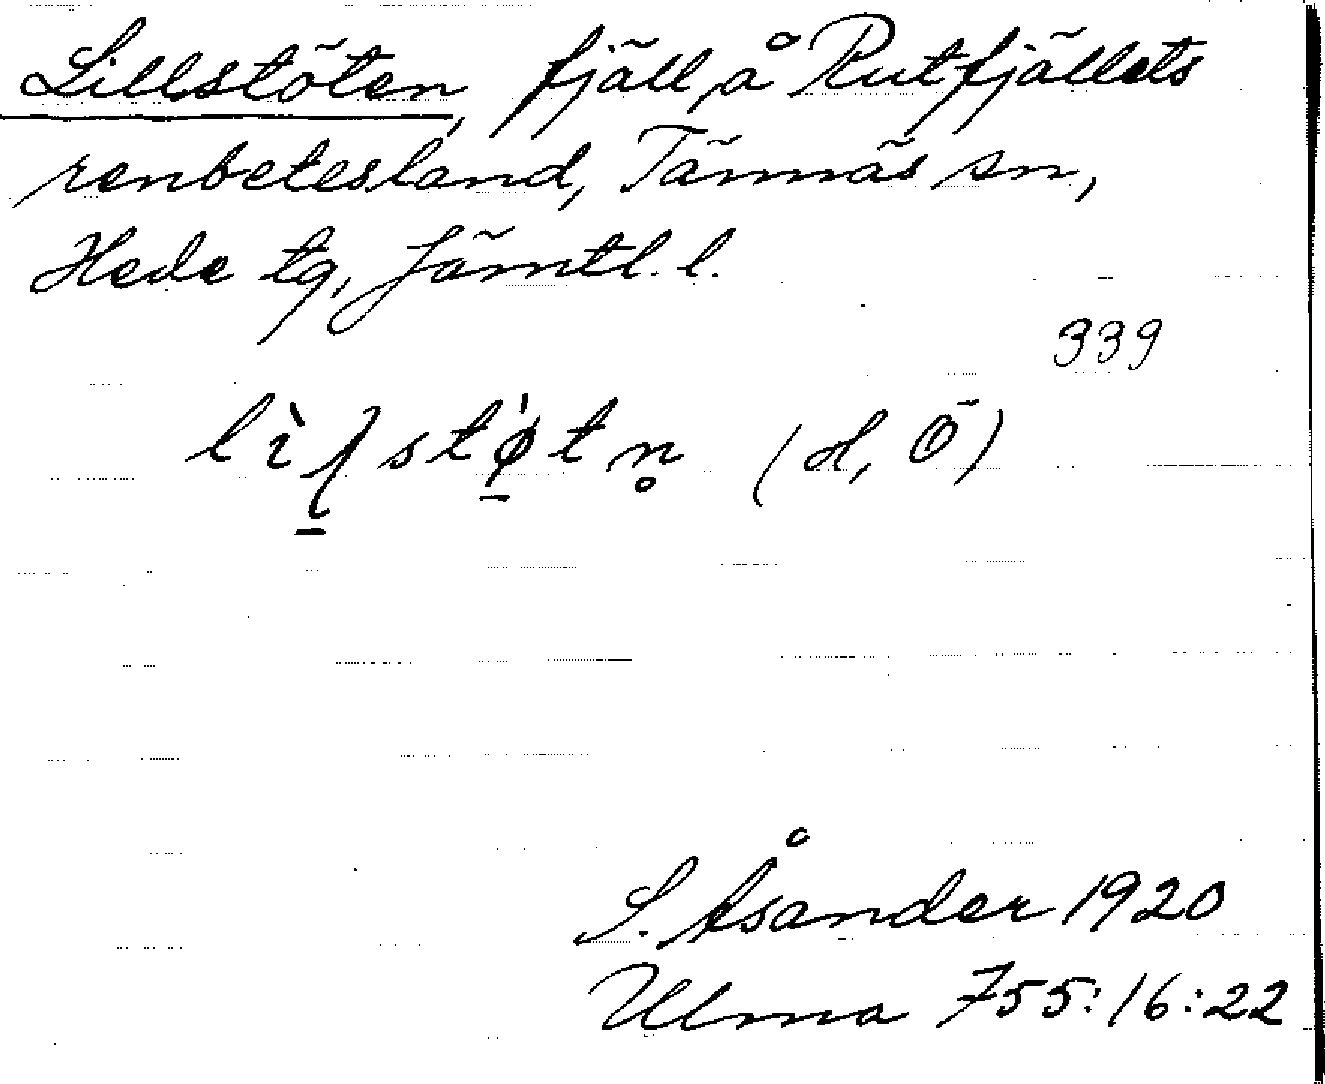 Lillstöten, fjäll å Rutfjällets
renbetesland, Tännäs sn,
Hede tg, Jämtl. l.
339
(H, Ö)
S. Åsander 1920
Ulma 755:16:22